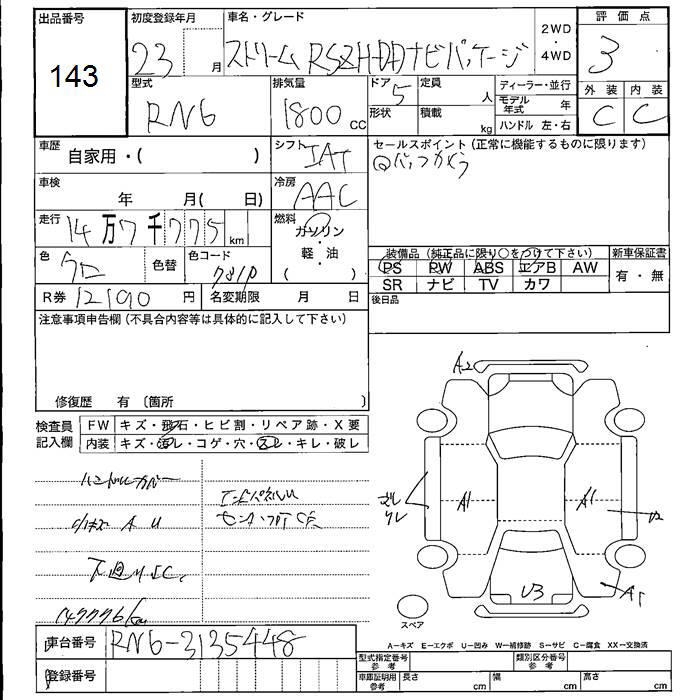 出品番号
143
初度登録年月
23 月
車名・グレード
ストリーム RSZ HDDナビパッケージ
2WD
・
4WD
評価点
3
外装 内装
C C
型式
RN6
排気量
1800 cc
ドア
5
形状
定員
人
積載
kg
ディーラー・並行
モデル年式 年
ハンドル 左・右
車歴
自家用・( )
シフト
IAT
セールスポイント (正常に機能するものに限ります)
車検
年 月( 日)
冷房
AAC
走行
14万7千775 km
燃料
ガソリン
・
軽・油
( )
色
クロ
色替
色コード
781P
R券 12190 円
名変期限 月 日
装備品 (純正品に限り○をつけて下さい)
PS PW ABS エアB AW
SR ナビ TV カワ
新車保証書
有・無
後日品
注意事項申告欄 (不具合内容等は具体的に記入して下さい)
修復歴 有 〔箇所 〕
検査員記入欄
FW キズ・飛石・ヒビ割・リペア跡・X要
内装 キズ・汚レ・コゲ・穴・スレ・キレ・破レ
ハンドルカバー
A U
下廻りSC
147776km
A2
A1
A1
U3
A1
スペア
A－キズ E－エクボ U－凹み W－補修跡 S－サビ C－腐食 XX－交換済
車台番号 RN6-3135448
登録番号
型式指定番号
参考
類別区分番号
参考
車庫証明用
参考
長さ cm
幅 cm
高さ cm